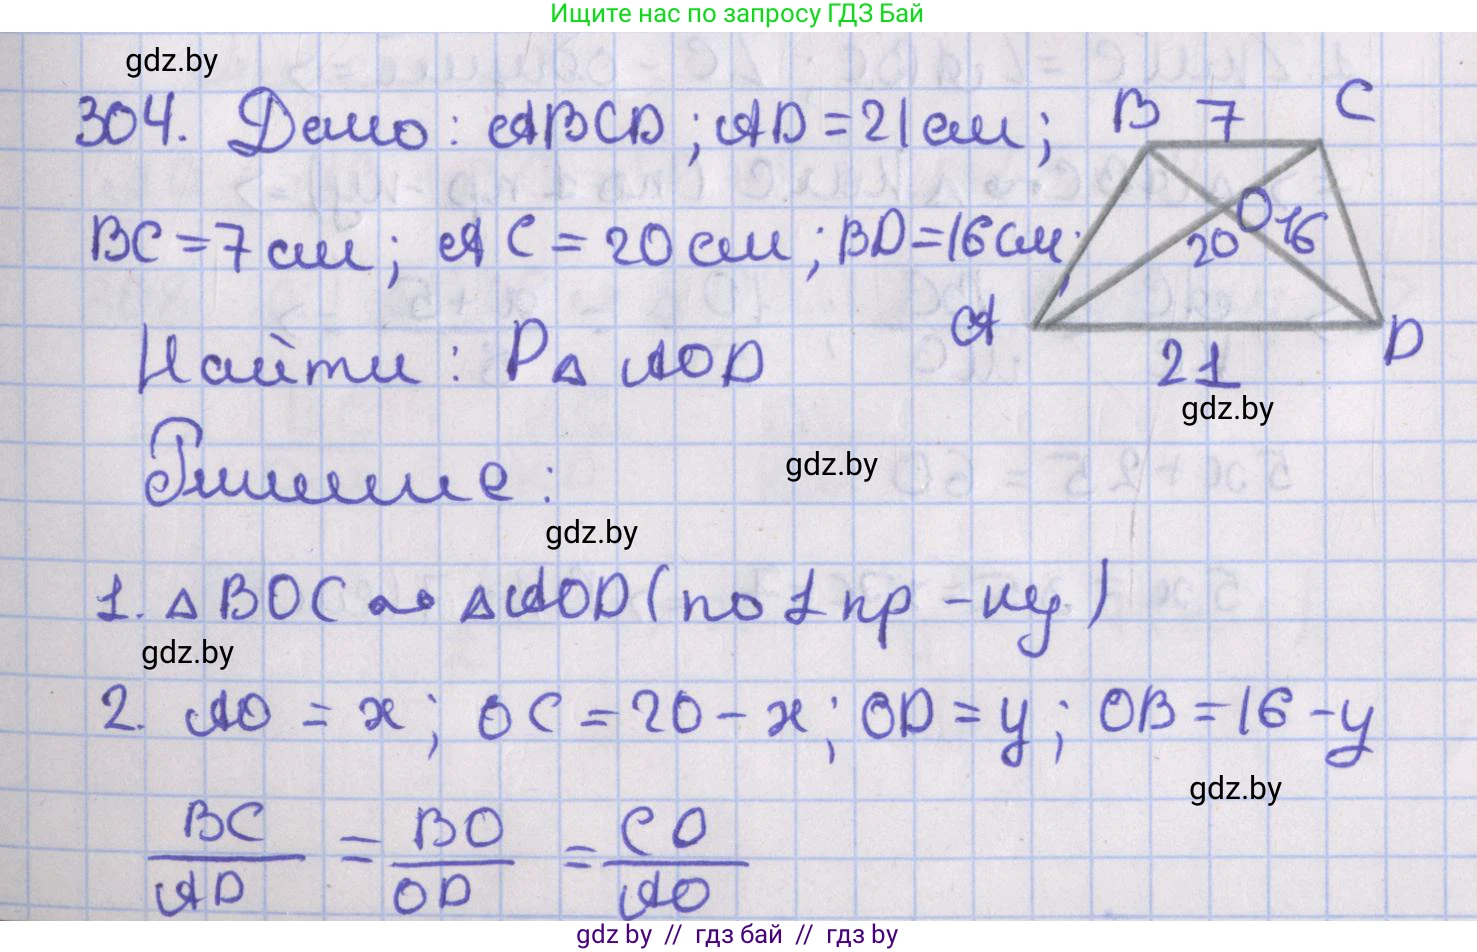 Ищите нас по запросу ГДЗ Бай
gdz.by
304. Дано: ABCD; AD = 21 см;
B 7 C
BC = 7 см; AC = 20 см; BD = 16 см;
O 16
20
A
D
21
Найти: P△ AOD
gdz.by
gdz.by
Решение:
gdz.by
1. △ BOC ∾ △ AOD (по 1 пр-ку)
gdz.by
2. AO = x; OC = 20 - x; OD = y; OB = 16 - y
gdz.by
BC/AD = BO/OD = CO/AO
gdz.by // гдз бай // гдз by